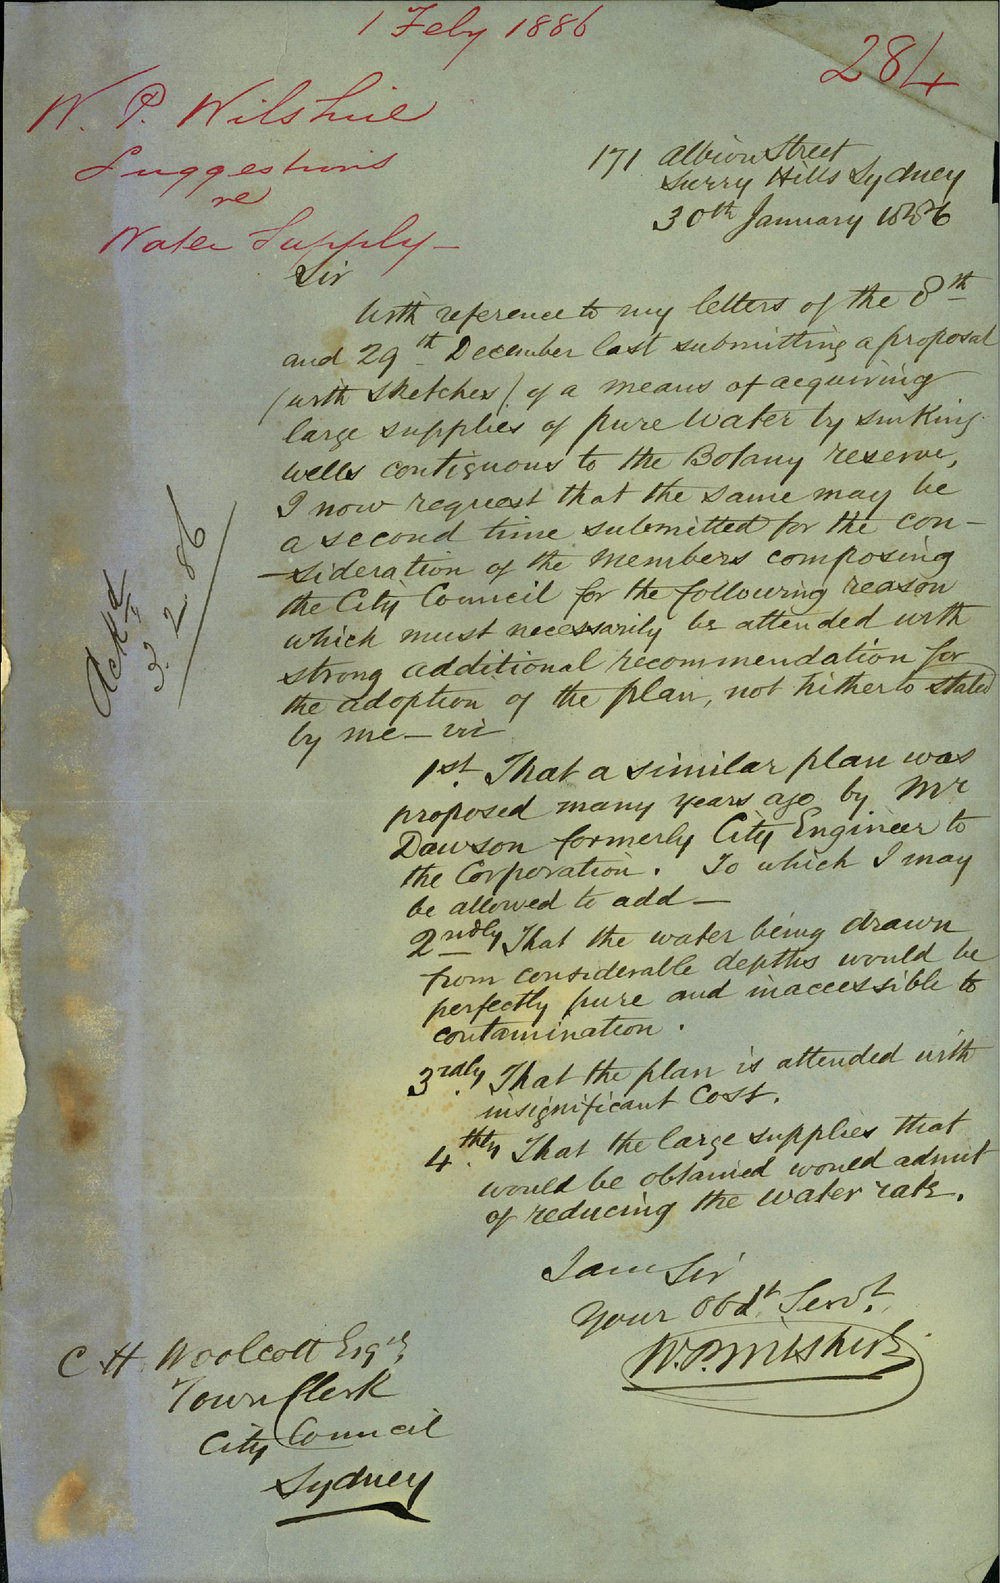 1 Feby 1886
284
W. P. Wilshire
Suggestions
re
Water Supply –
171 Albion Street
Surry Hills Sydney
30th January 1886
Sir
With reference to my letters of the 8th
and 29th December last submitting a proposal
(with sketches) of a means of acquiring
large supplies of pure water by sinking
wells contiguous to the Botany reserve,
I now request that the same may be
a second time submitted for the con-
-sideration of the members composing
the City Council for the following reason
which must necessarily be attended with
strong additional recommendation for
the adoption of the plan, not hitherto stated
by me – viz
1st. That a similar plan was
proposed many years ago by Mr
Dawson formerly City Engineer to
the Corporation. To which I may
be allowed to add –
2ndly That the water being drawn
from considerable depths would be
perfectly pure and inaccessible to
contamination.
3rdly. That the plan is attended with
insignificant cost.
4thly. That the large supplies that
would be obtained would admit
of reducing the water rate.
I am Sir
Your Obdt. Servt.
W. P. Wilshire
C H Woolcott Esqre
Town Clerk
City Council
Sydney
Ackd
3. 2. 86